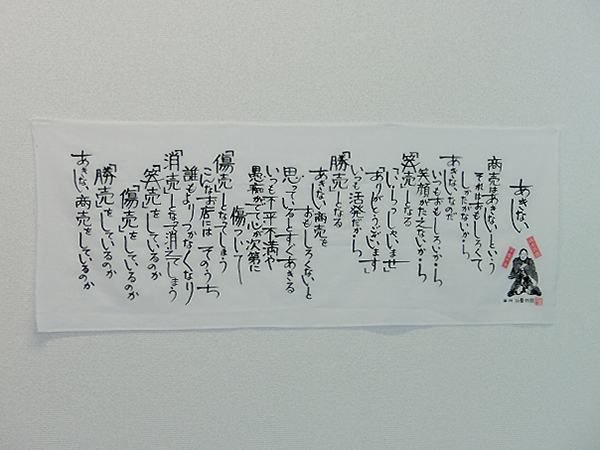 あきない
商売はあきないという
それはおもしろくて
しかたがないから
あきないなのだ
いつもおもしろいから
笑顔がたえないから
「笑売」となる
「いらっしゃいませ」
「ありがとうございます」
いつも活発だから
「勝売」となる
あきない商売を
おもしろくないと
思っているとすぐあきる
いつも不平不満や
愚痴がでて心が次第に
傷ついて
「傷売」となってしまう
こんなお店にはそのうち
誰もよりつかなくなり
「消売」となって消えてしまう
「笑売」をしているのか
「傷売」をしているのか
「勝売」をしているのか
あきない商売をしているのか